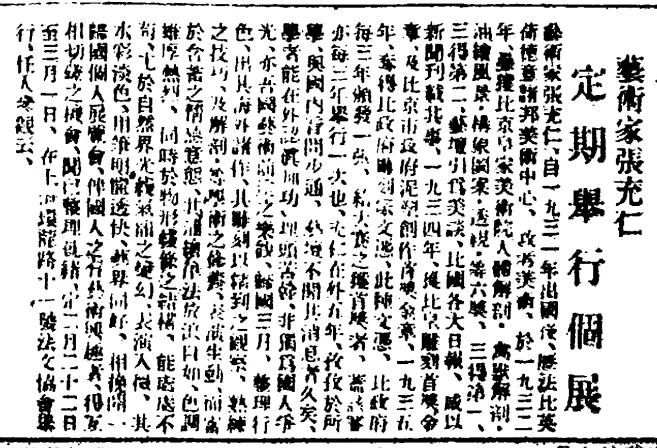 藝術家張充仁
定期舉行個展
藝術家張充仁、自一九三一年出國後、歷法比英
荷德意諸邦美術中心、攻考美術、於一九三二
年、曾獲比京皇家美術院人體解剖、禽獸解剖、
油繪風景、構景圖案、透視、等六獎、三得第一、
三得第二、藝壇引爲美談、比國各大日報、咸以
新聞刊載其事、一九三四年、獲比皇雕刻首獎、金
章、及比京市政府泥塑創作首獎金章、一九三五
年、奪得比政府雕刻家文憑、此種文憑、比政府
每三年頒發一張、私大賽之獲首獎者、蓋該賽
亦每三年舉行一次也、充仁在外五年、孜孜於所
學、與國內音問少通、故遂不聞其消息者久矣、
學者能在外認眞加功、埋頭苦幹、非獨爲國人爭
光、亦吾國藝術前途之樂觀、歸國三月、整理行
色、出其海外諸作、其雕刻以精到之觀察、熟練
之技巧、及解剖、等學術之修養、表演生動、而富
於含蓄之情思意態、其油繪作法放浪自如、色調
雄厚熱烈、同時於物形體態之結構、能處處不
苟、尤於自然界光線氣韵之變幻、表演入微、其
水彩淡色、用筆明闊透快、藝界同好、相慫恿一
歸國個人展覽會、俾國人之有藝術興趣者、得互
相切磋之機會、聞已整理就緒、定二月二十二日
至三月一日、在十二環龍路十一號法文協會舉
行、任人參觀云、